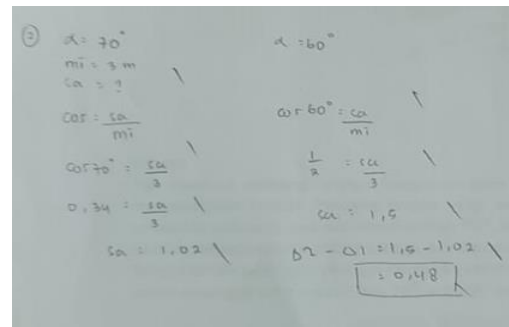 ② α = 70°
mi = 3 m
sa = ?
cos = sa / mi
cos 70° = sa / 3
0,34 = sa / 3
sa = 1,02
α = 60°
cos 60° = sa / mi
1 / 2 = sa / 3
sa = 1,5
Δ2 - Δ1 = 1,5 - 1,02
= 0,48